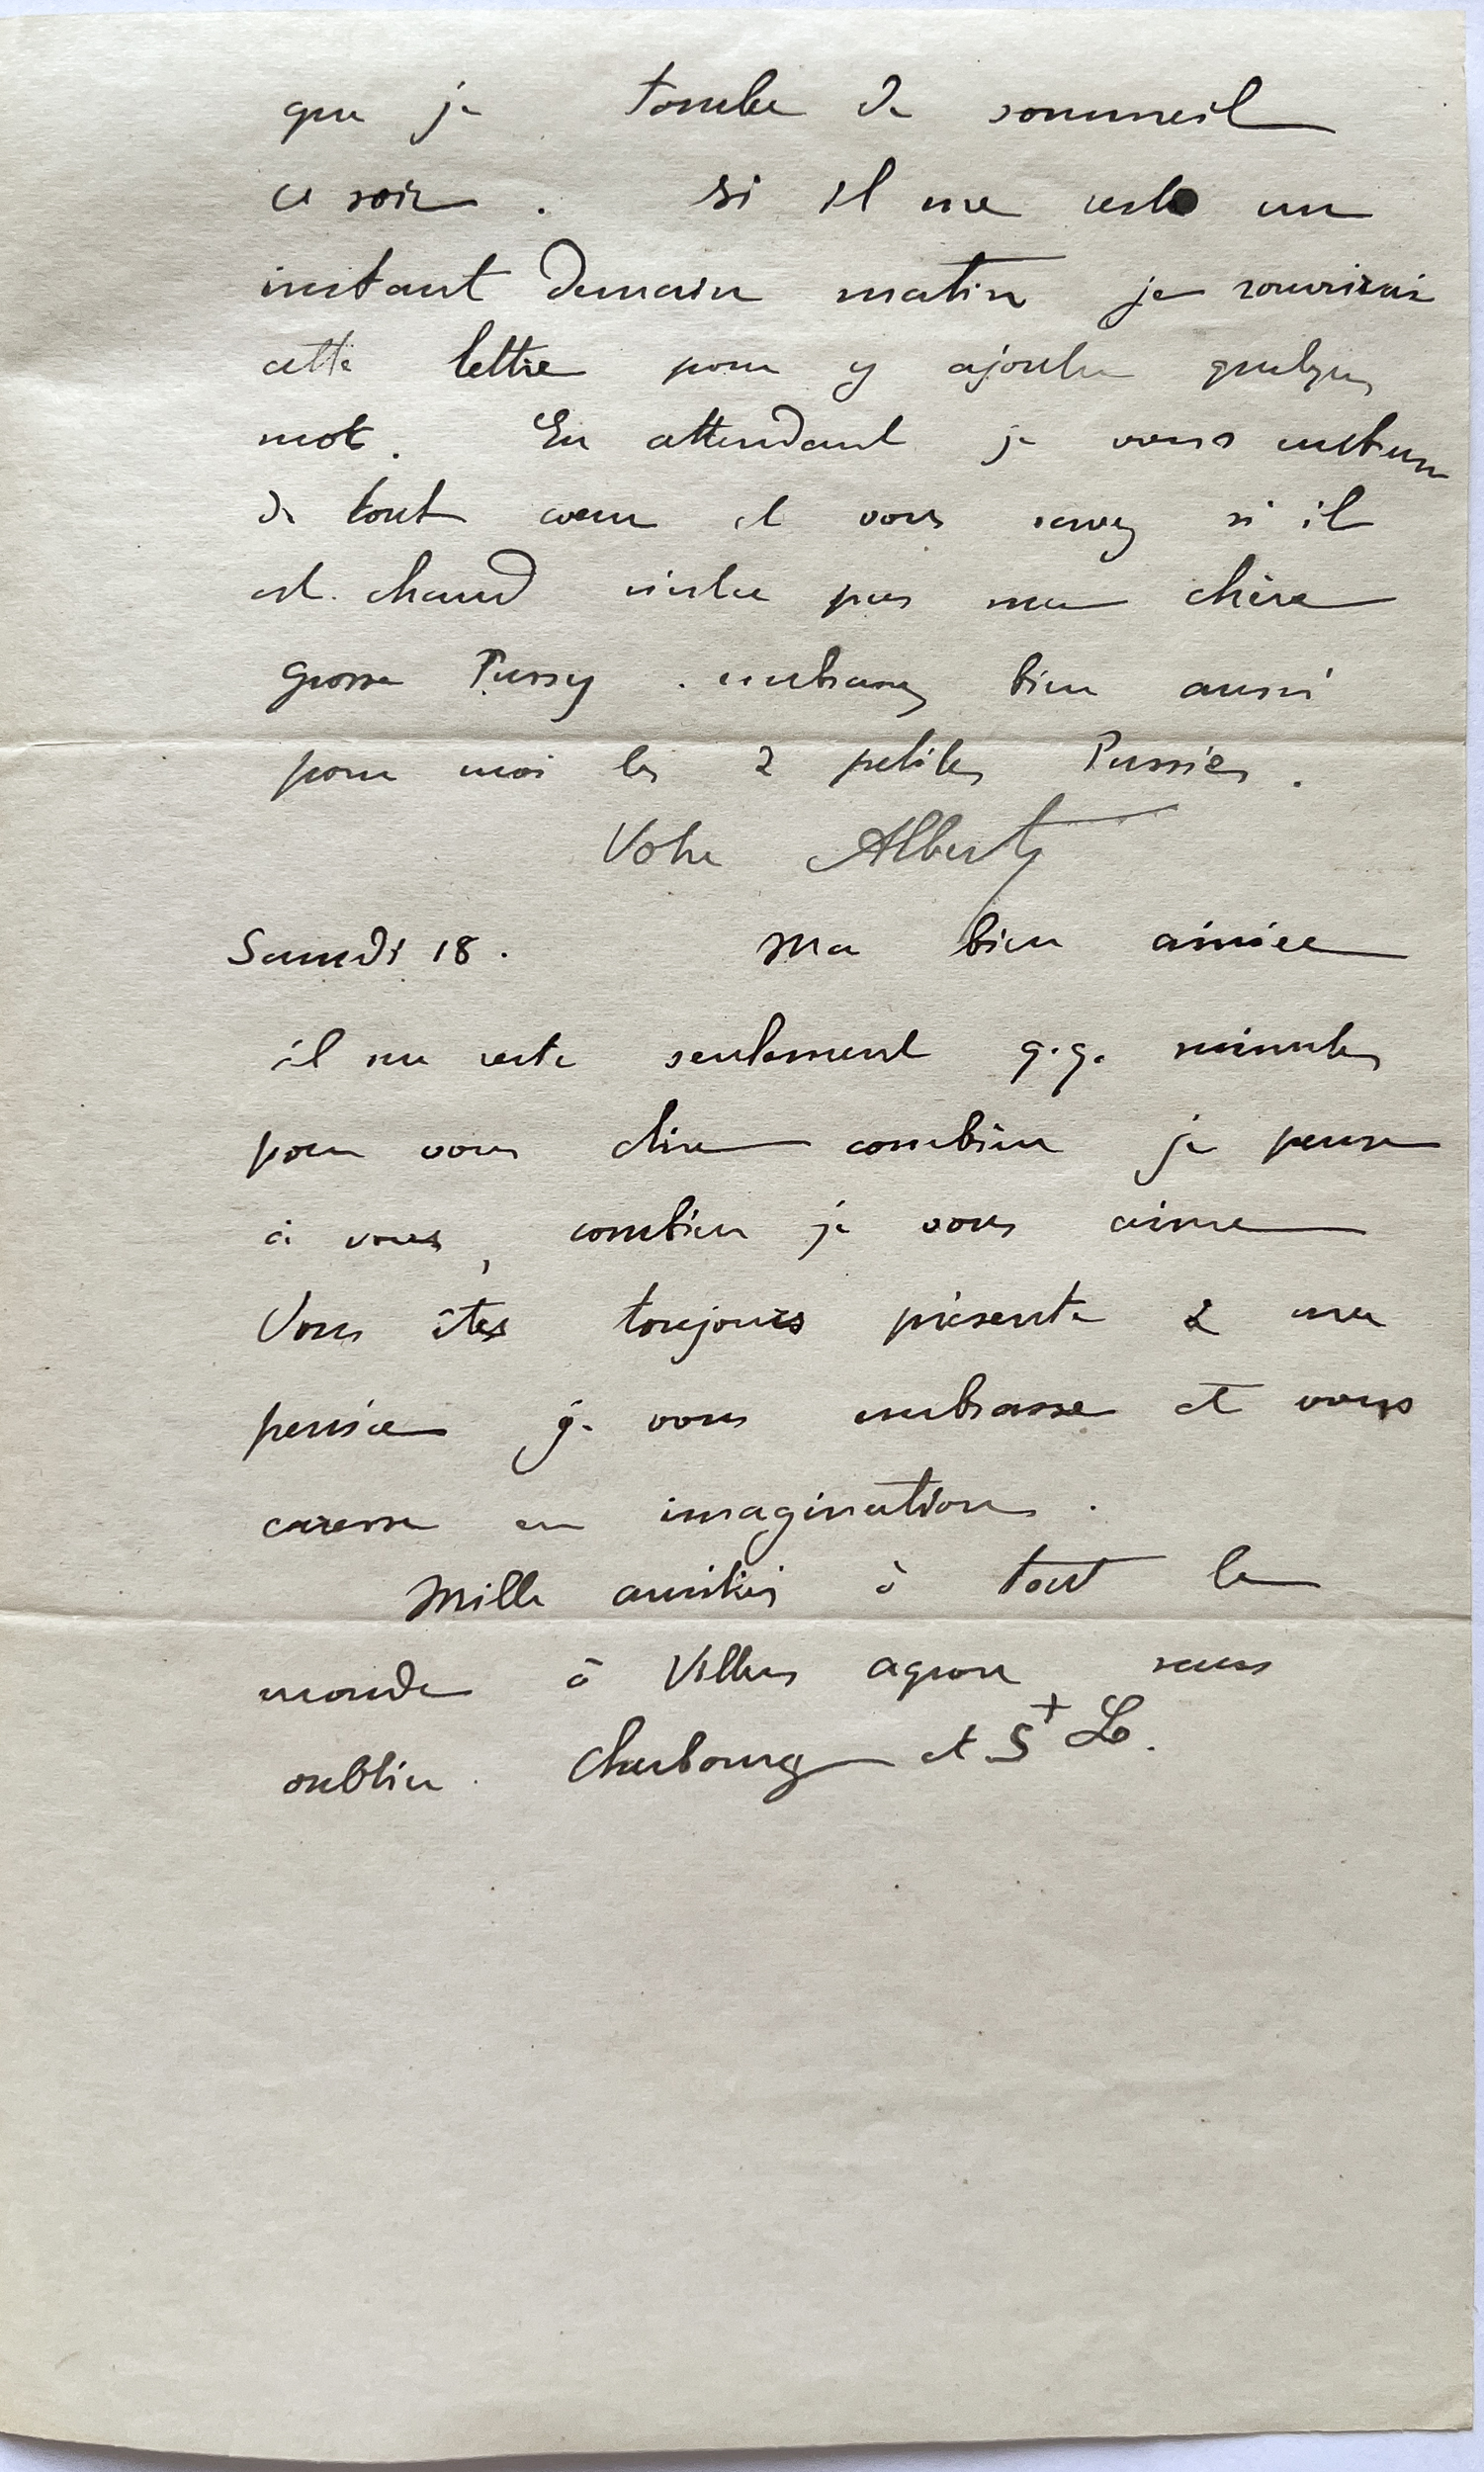 que je tombe de sommeil
ce soir. Si il me reste un
instant demain matin je rouvrirai
cette lettre pour y ajouter quelques
mots. En attendant je vous embrasse
de tout cœur et vous savez si il
est chaud n'est ce pas ma chère
grosse Pussy. embrassez bien aussi
pour moi les 2 petites Pussies.
Votre Albert
Samedi 18. Ma bien aimée
il me reste seulement q.q. minutes
pour vous dire combien je pense
à vous, combien je vous aime
Vous êtes toujours présente à ma
pensée je vous embrasse et vous
caresse en imagination.
Mille amitiés à tout le
monde à Villers agron sans
oublier Cherbourg et St Lo.